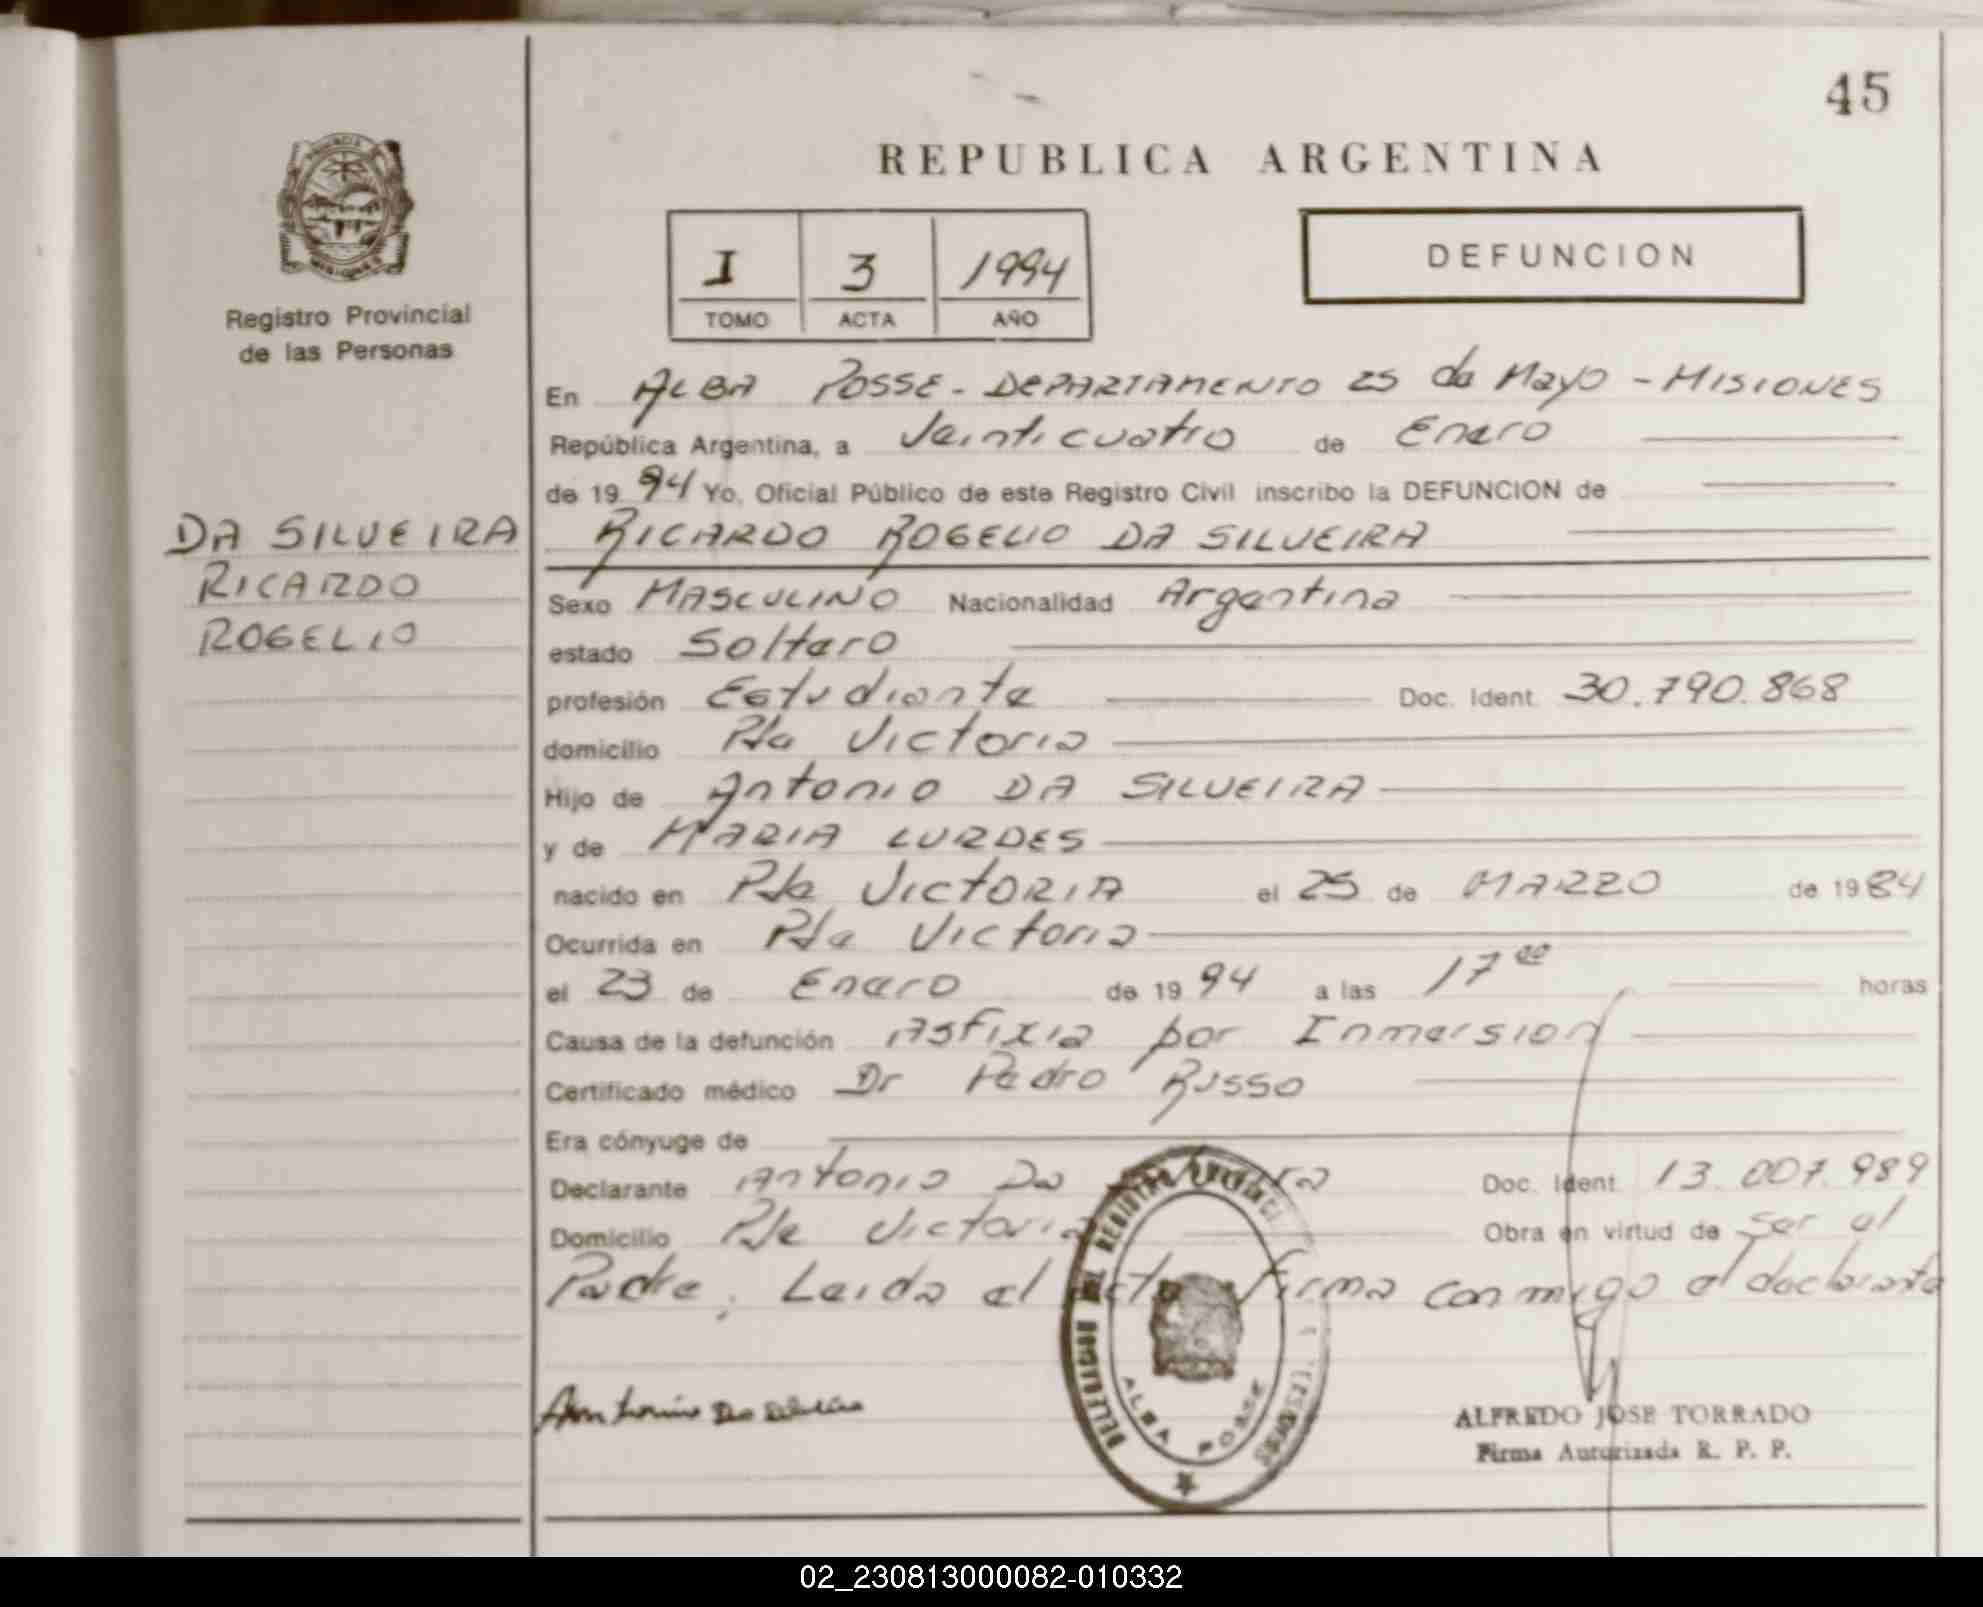 45
REPUBLICA ARGENTINA
I 3 1994
TOMO ACTA AÑO
DEFUNCION
Registro Provincial
de las Personas
DA SILVEIRA
RICARDO
ROGELIO
En ALBA POSSE - DEPARTAMENTO 25 de Mayo - MISIONES
República Argentina, a Veinticuatro de Enero
de 19 94 Yo, Oficial Público de este Registro Civil inscribo la DEFUNCION de
RICARDO ROGELIO DA SILVEIRA
Sexo MASCULINO Nacionalidad Argentina
estado Soltero
profesión Estudiante Doc. Ident. 30.790.868
domicilio Pto Victoria
Hijo de Antonio DA SILVEIRA
y de MARIA LURDES
nacido en Pto VICTORIA el 25 de MARZO de 19 84
Ocurrida en Pto Victoria
el 23 de Enero de 19 94 a las 17 00 horas
Causa de la defunción Asfixia por Inmersion
Certificado médico Dr Pedro Russo
Era cónyuge de
Declarante Antonio Da Doc. Ident. 13.007.989
Domicilio Pto Victoria Obra en virtud de Ser el
Padre, Leida el Acta firma conmigo el declarante
ALBA POSSE
ALFREDO JOSE TORRADO
Firma Autorizada R. P. P.
02_230813000082-010332